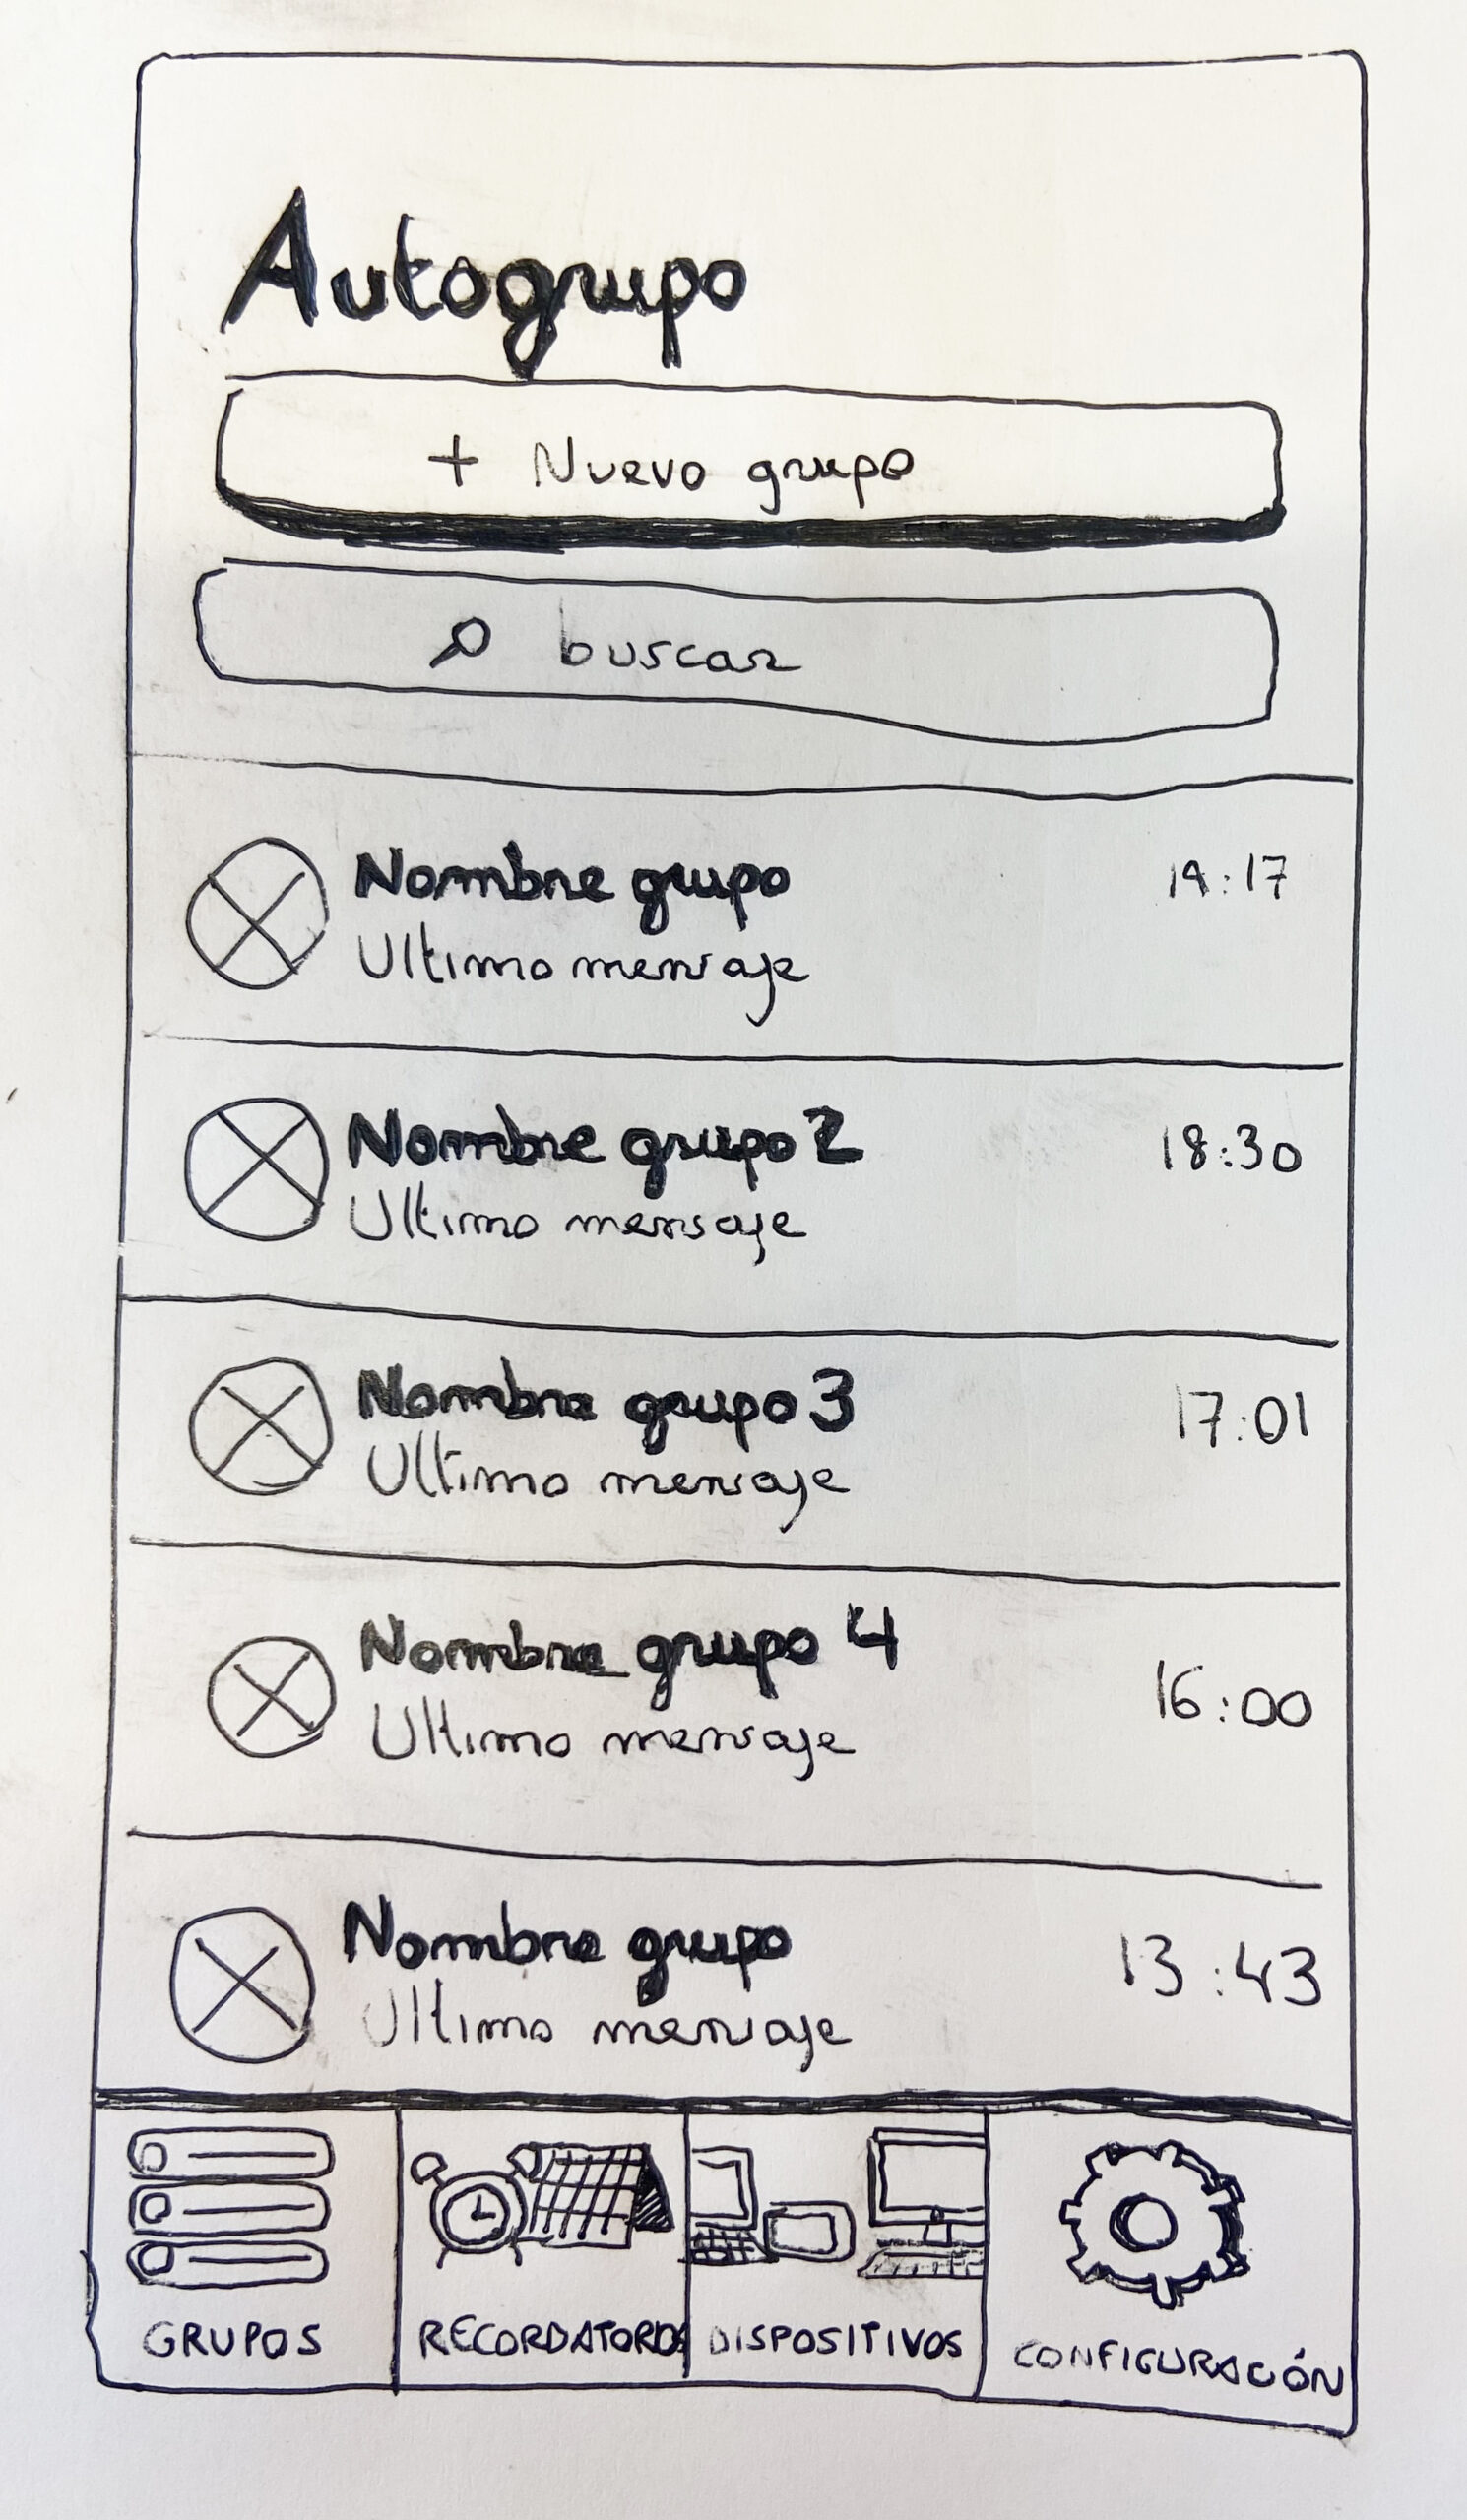 Autogrupo
+ Nuevo grupo
buscar
Nombre grupo
Ultimo mensaje
19:17
Nombre grupo 2
Ultimo mensaje
18:30
Nombre grupo 3
Ultimo mensaje
17:01
Nombre grupo 4
Ultimo mensaje
16:00
Nombre grupo
Ultimo mensaje
13:43
GRUPOS
RECORDATOROS
DISPOSITIVOS
CONFIGURACÓN